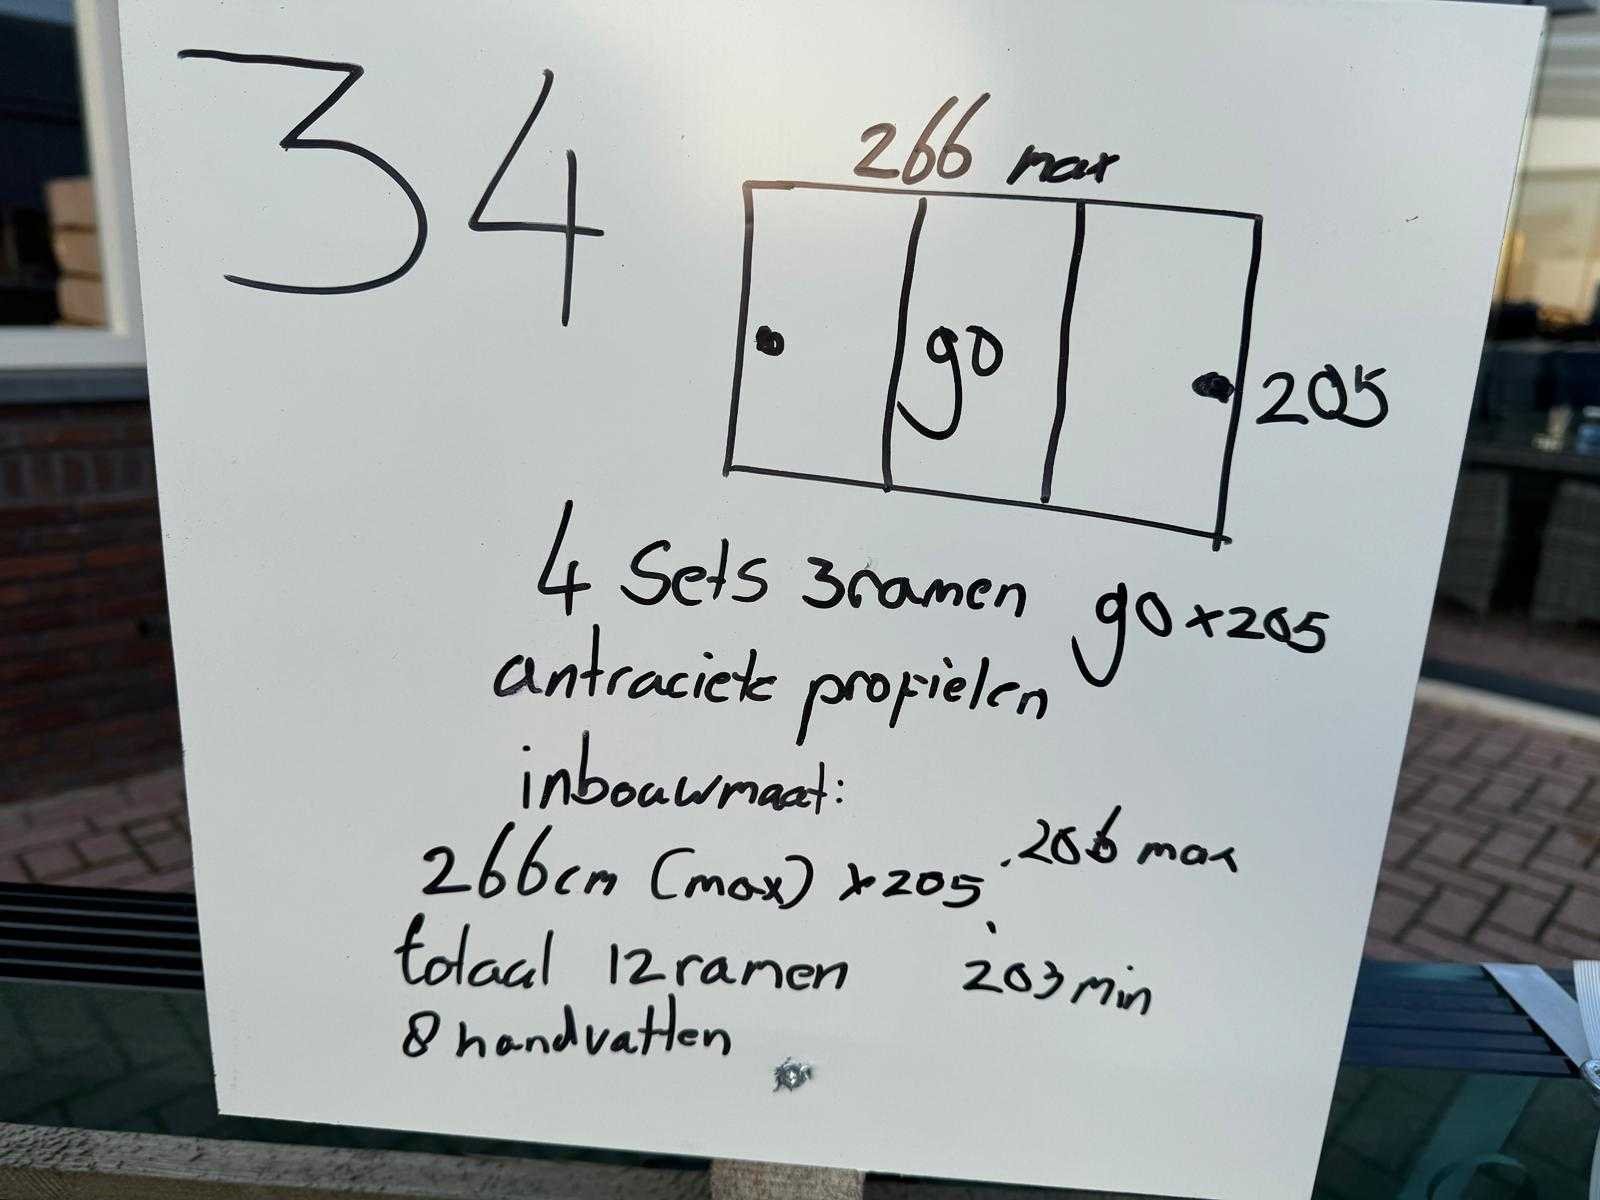 34
266 max
90
205
4 Sets 3 ramen 90x205
antraciek profielen
inbouwmaat:
266cm (max) x 205 206 max
totaal 12 ramen 203 min
8 handvatten